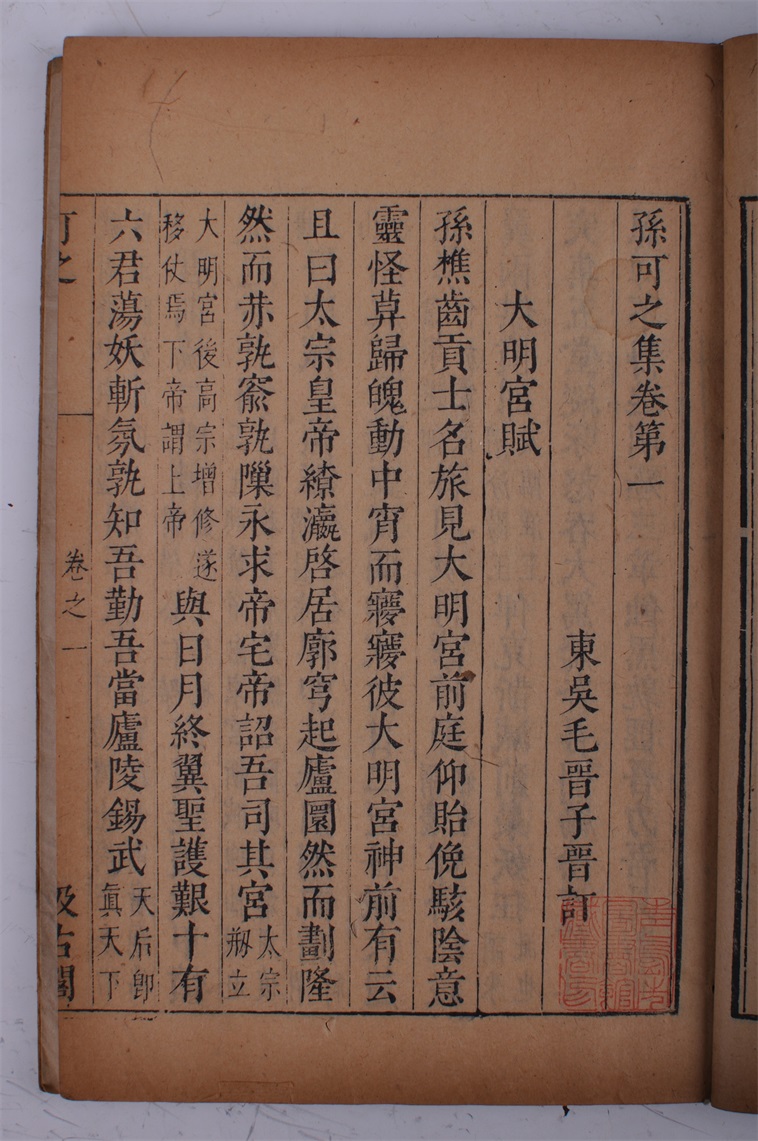 孫可之集卷第一
東吳毛晉子晉訂
大明宮賦
孫樵齒貢士名旅見大明宮前庭仰眙俛駭陰意
靈怪𦯧歸魄動中宵而寢寢彼大明宮神前有云
且曰太宗皇帝繚瀛啓居廓穹起廬圜然而劃隆
然而赤孰窳孰隟永求帝宅帝詔吾司其宮太宗
剏立
大明宮後高宗增修遂
移仗焉下帝謂上帝
與日月終翼聖護艱十有
六君蕩妖斬氛孰知吾勤吾當廬陵錫武天后即
真天下
可之
卷之一
汲古閣